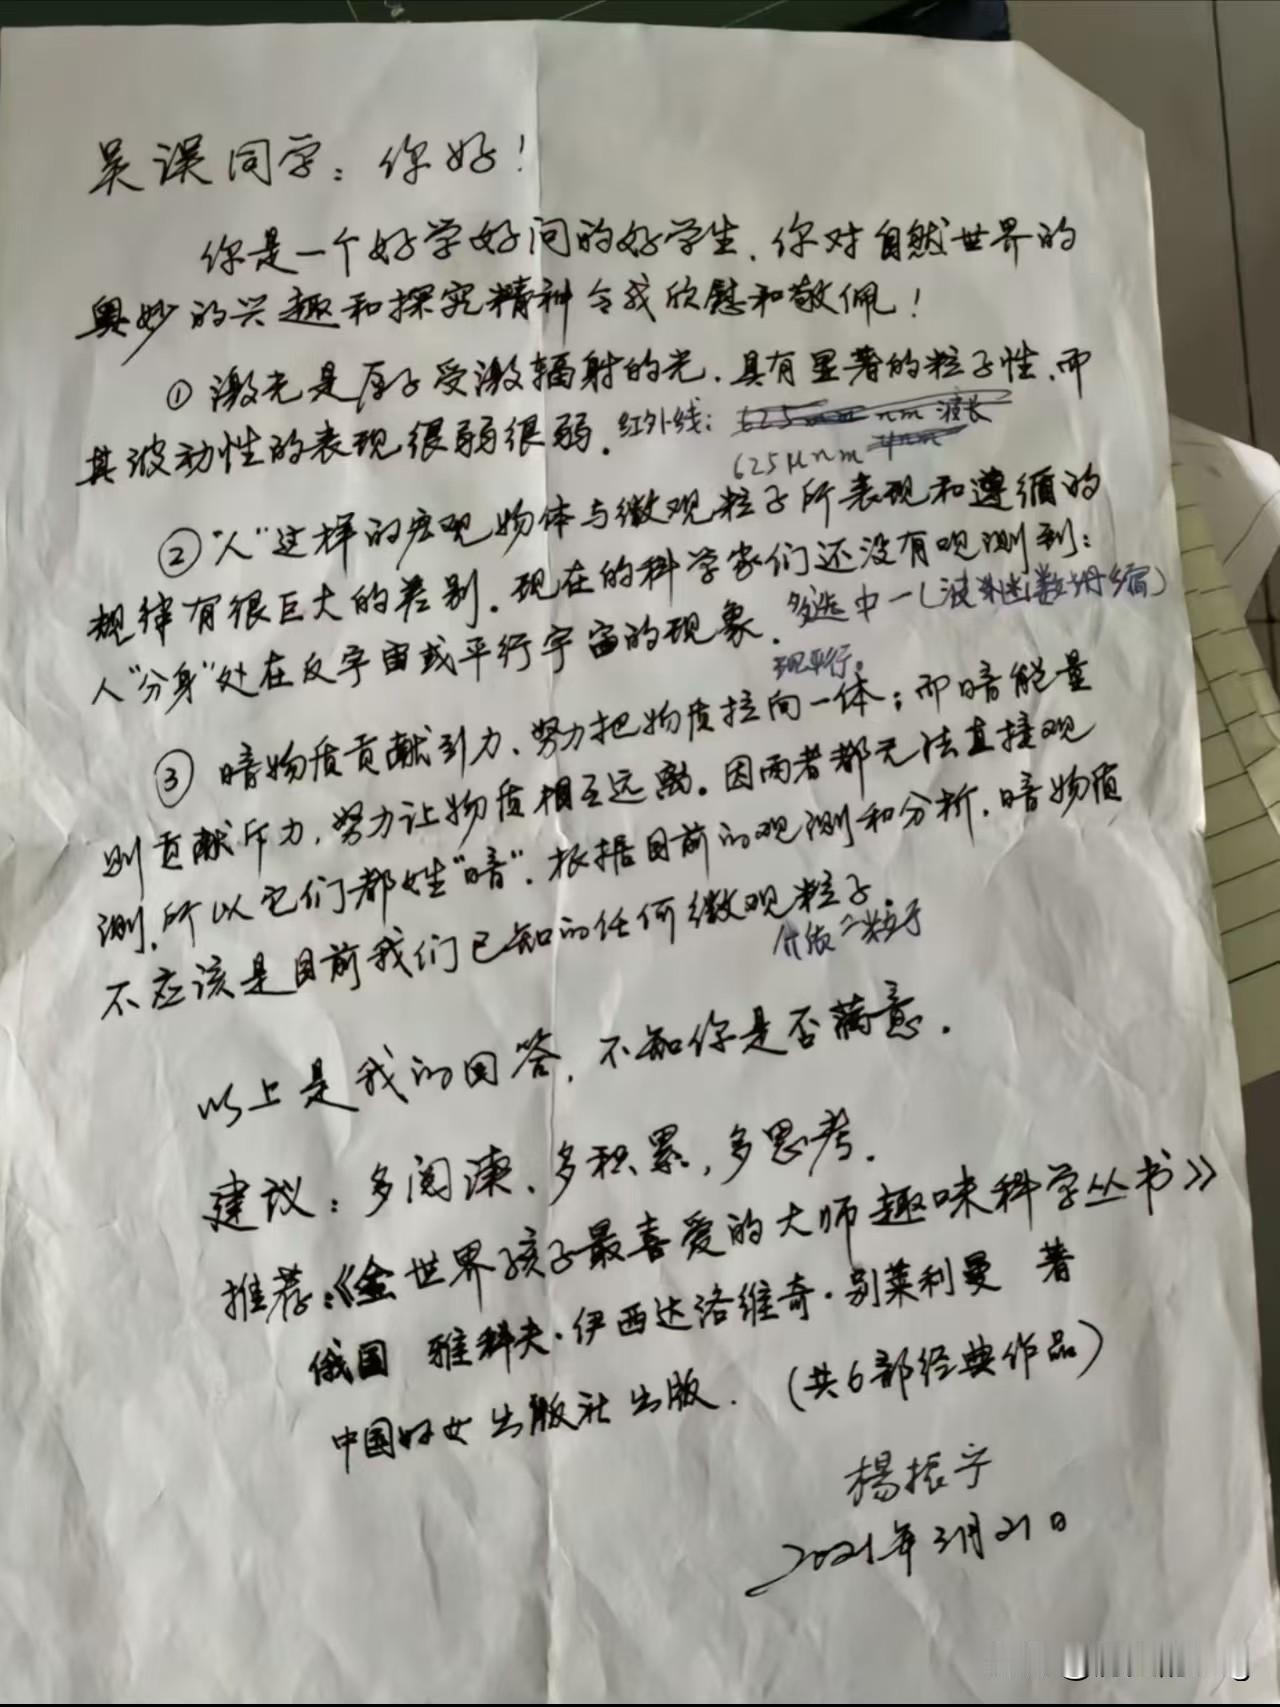 吴误同学：你好！
你是一个好学好问的好学生，你对自然世界的
奥妙的兴趣和探究精神令我欣慰和敬佩！
① 激光是原子受激辐射的光，具有显著的粒子性，而
其波动性的表现很弱很弱。红外线：625 nm 波长
625μnm
② “人”这样的宏观物体与微观粒子所表现和遵循的
规律有很巨大的差别。现在的科学家们还没有观测到：
人“分身”处在反宇宙或平行宇宙的现象。多选中一（波函数坍缩）
现平行。
③ 暗物质贡献引力，努力把物质拉向一体；而暗能量
则贡献斥力，努力让物质相互远离。因两者都无法直接观
测，所以它们都姓“暗”。根据目前的观测和分析，暗物质
不应该是目前我们已知的任何微观粒子。
粒子
以上是我的回答，不知你是否满意。
建议：多阅读，多积累，多思考。
推荐：《全世界孩子最喜爱的大师趣味科学丛书》
俄国 雅科夫·伊西达洛维奇·别莱利曼 著
中国妇女出版社出版．（共6部经典作品）
楊振宁
2021年3月21日